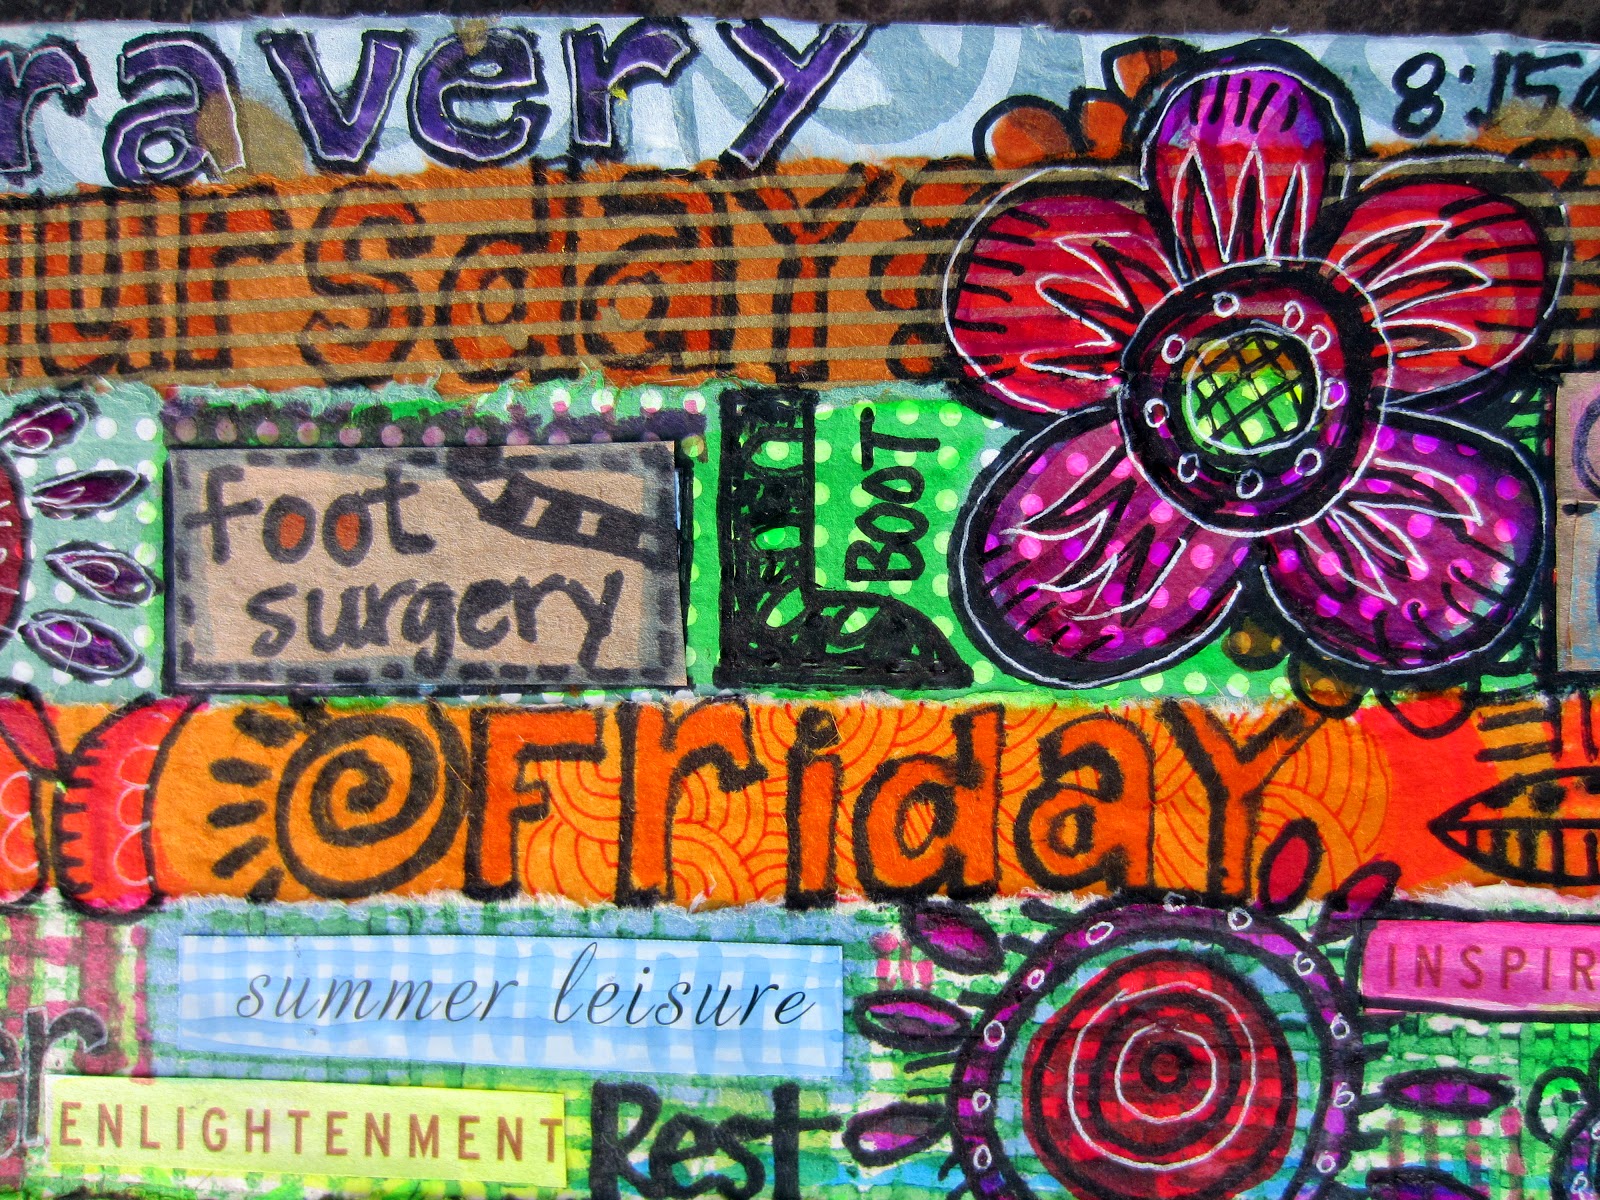 ravery
8:15a
hursday
foot
surgery
BOOT
Friday
summer leisure
INSPIR
er
ENLIGHTENMENT
Rest